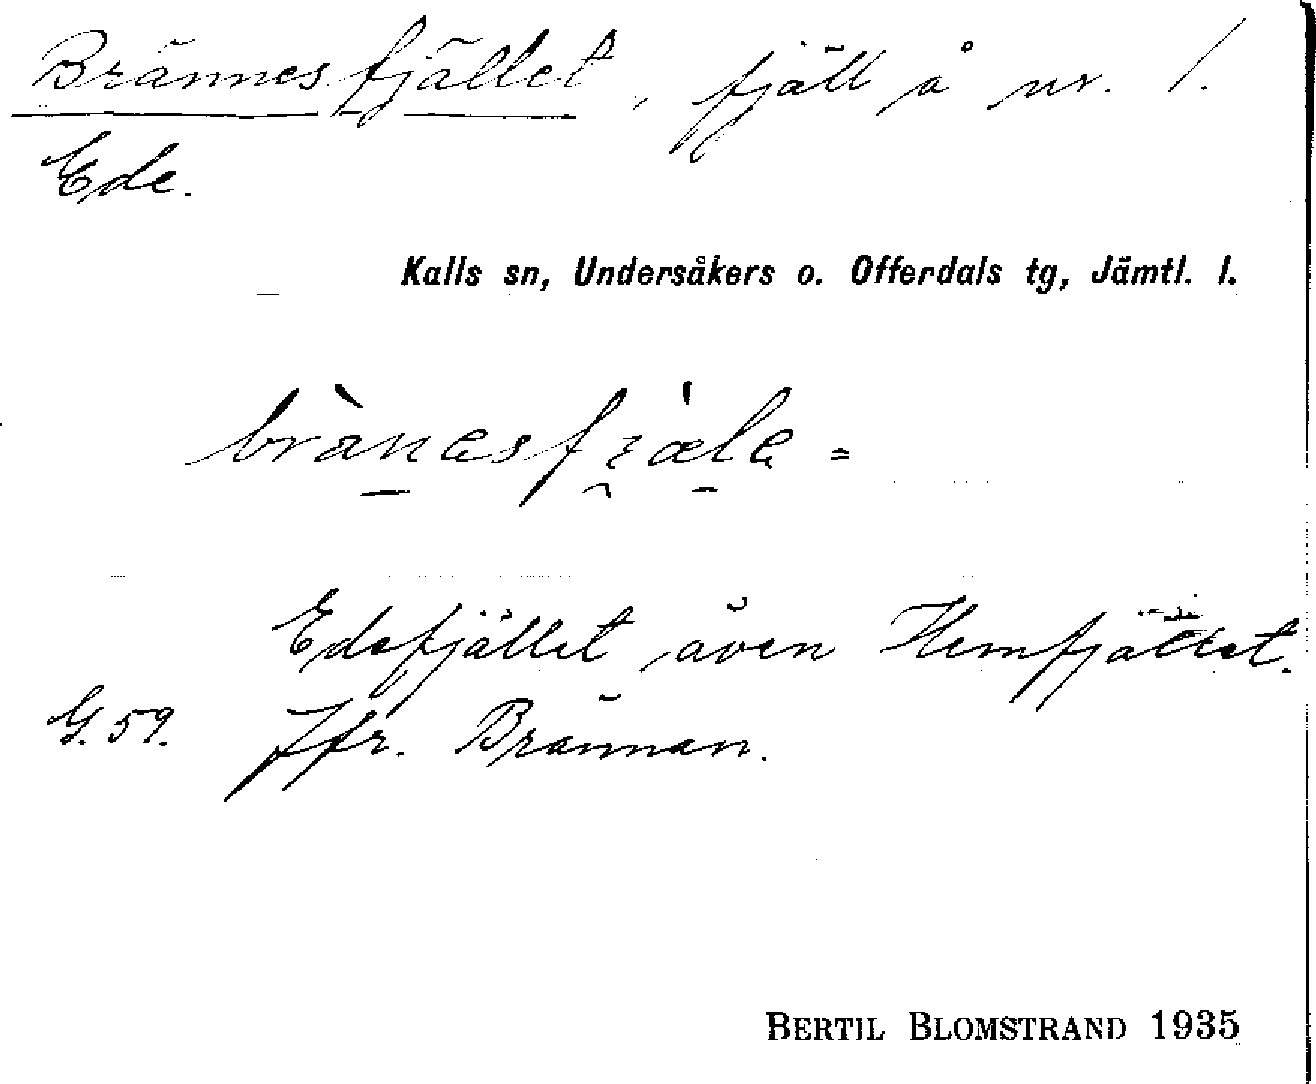 Brännesfjället, fjäll å nr. 1.
Ede.
Kalls sn, Undersåkers o. Offerdals tg, Jämtl. l.
brànesfjæle =
Edefjället även Hemfjället.
G. 59. Jfr. Brännan.
BERTIL BLOMSTRAND 1935